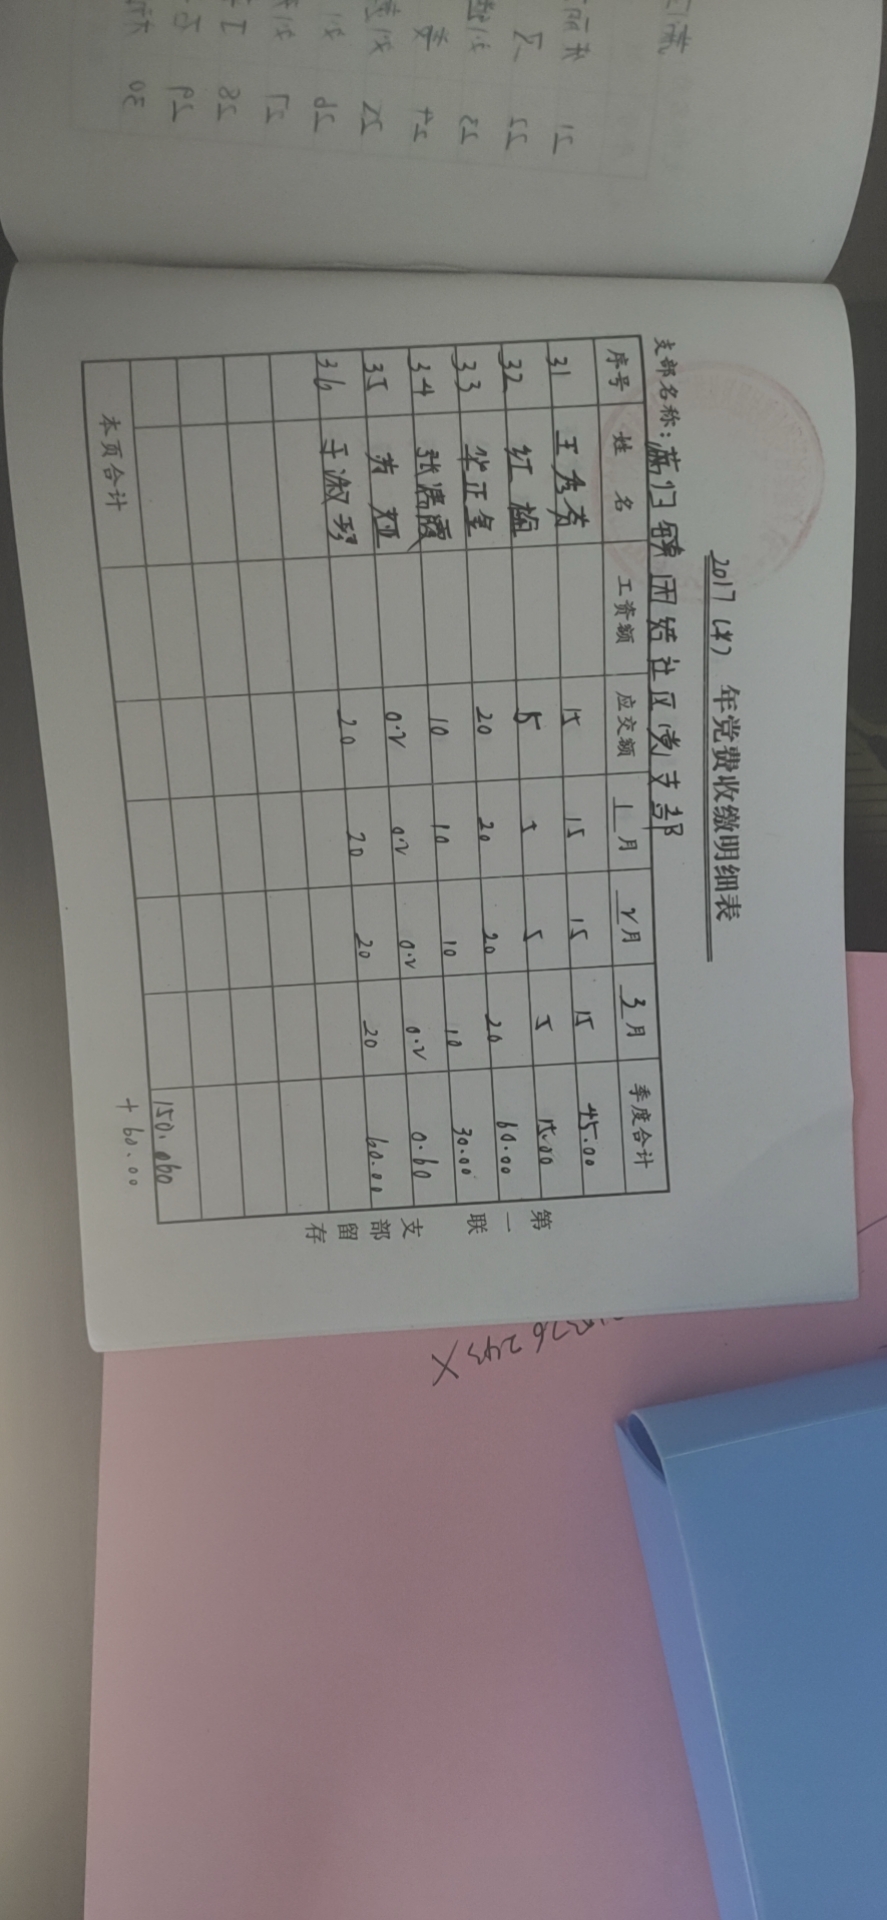 2017 年党费收缴明细表
支部名称：满归镇团结社区党支部
序号 姓名 工资额 应交额 1月 2月 3月 季度合计
31 王秀芳 15 15 15 15 45.00
32 红梅 5 5 5 5 15.00
33 华正全 20 20 20 20 60.00
34 张清霞 10 10 10 10 30.00
35 0.2 0.2 0.2 0.2 0.60
36 于淑珍 20 20 20 20 60.00
本页合计 150.060
+60.00
第一联 支部留存
243X